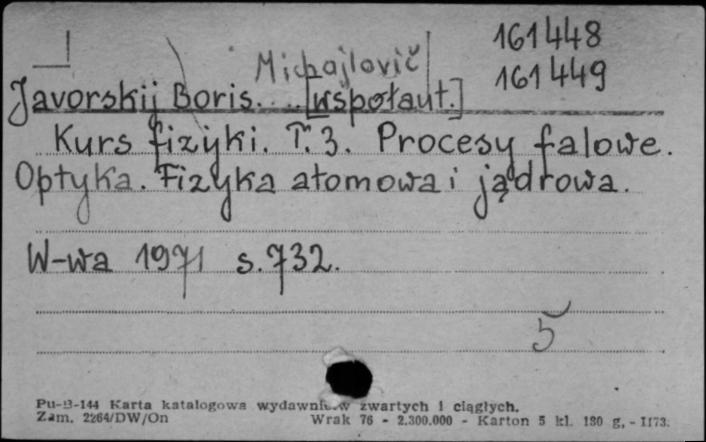 161448
Michajlovič
161449
Javorskij Boris. ... [współaut.]
Kurs fizyki. T. 3. Procesy falowe.
Optyka. Fizyka atomowa i jądrowa.
W-wa 1971 s. 732.
5
Pu-B-144 Karta katalogowa wydawnictw zwartych i ciągłych.
Zam. 2264/DW/On Wrak 76 - 2.300.000 - Karton 5 kl. 180 g, - 1173.